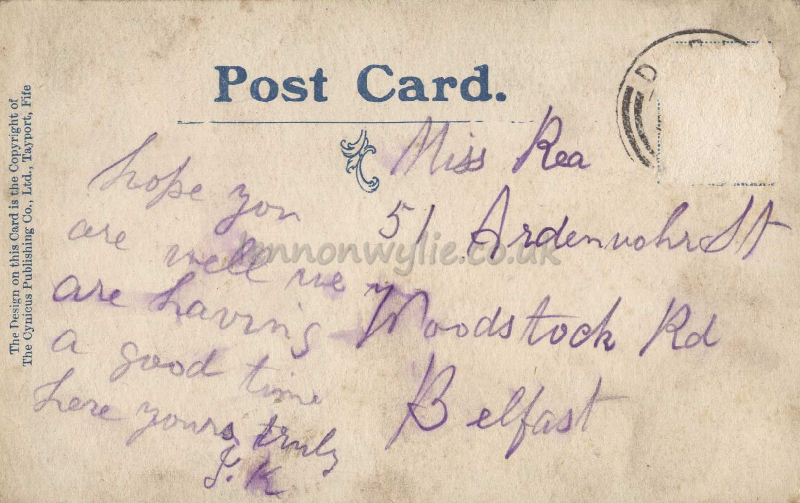 Post Card.
The Design on this Card is the Copyright of
The Cynicus Publishing Co., Ltd., Tayport, Fife
hope you
are well we
are having
a good time
here yours truly
J. K
Miss Rea
51 Ardenvohr St
Woodstock Rd
Belfast
lennonwylie.co.uk
D